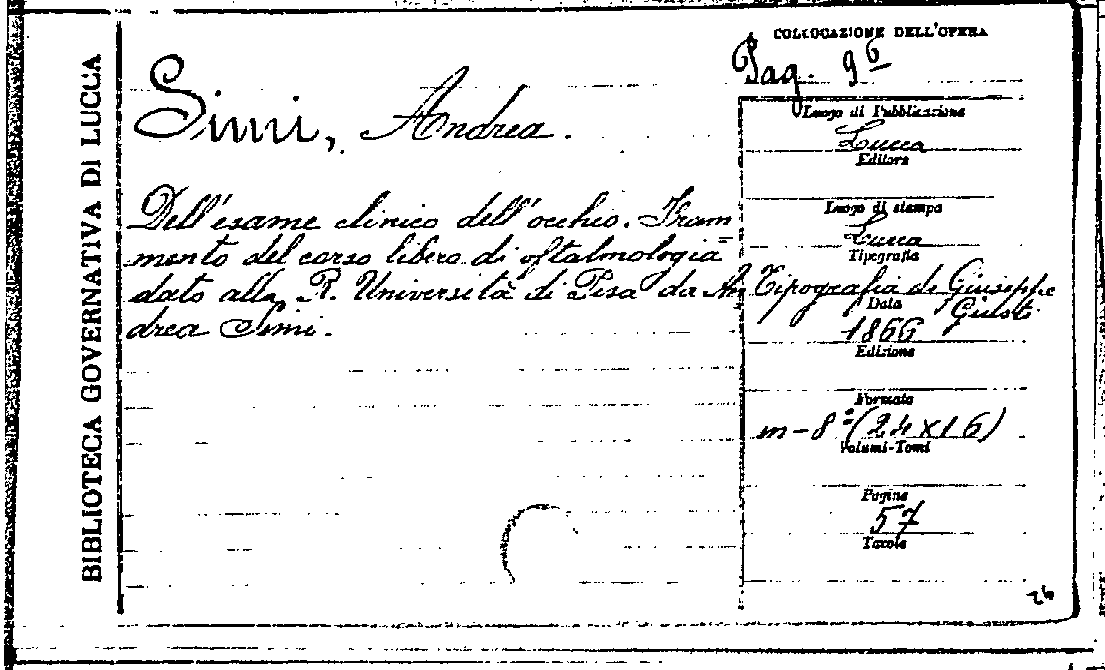 BIBLIOTECA GOVERNATIVA DI LUCCA
Simi, Andrea.
Dell'esame clinico dell'occhio. Fram=
mento del corso libero di oftalmologia
dato alla R. Università di Pisa da An=
drea Simi.
COLLOCAZIONE DELL'OPERA
Pag. 96
Luogo di Pubblicazione
Lucca
Editore
Luogo di stampa
Lucca
Tipografia
Tipografia di Giuseppe
Giusti
Data
1866
Edizione
Formato
in-8º (24x16)
Volumi-Tomi
Pagine
57
Tavole
26